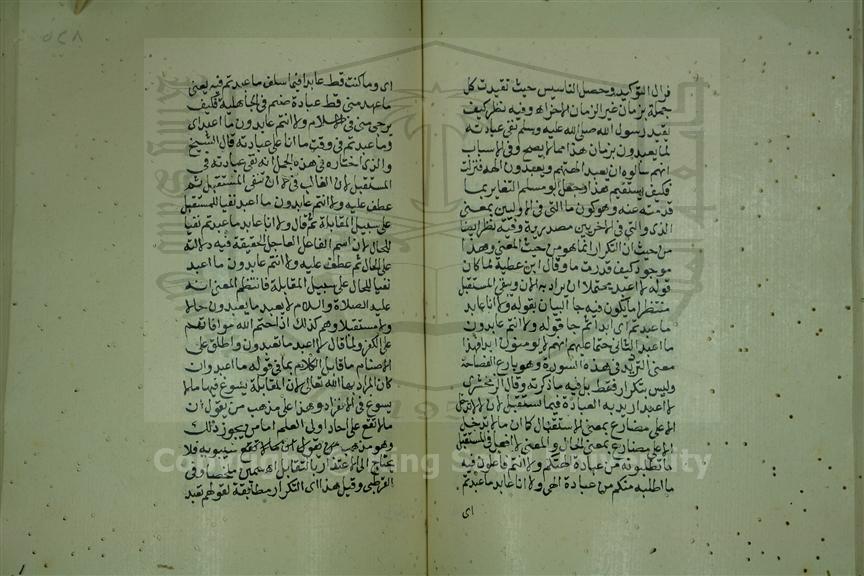 فزال التوكيد وحصل التاسيس حيث تقيدت كل
جملة بزمان غير الزمان الاخر اه وفيه نظر كيف
يقيد رسول الله صلى الله عليه وسلم نفى عبادته
لما يعبدون بزمان هذا مما لا يصح وفى الاسباب
انهم سالوه ان يعبد الهتهم ويعبدون الهه فنزلت
فكيف يستقيم هذا وجعل ابو مسلم التغاير بما
قدمته عنه وهو كون ما التى فى الاوليين بمعنى
الذى والتى فى الاخريين مصدرية وفيه نظر ايضا
من حيث ان التكرار انما هو من حيث المعنى وهذا
موجود كيف قدرت ما وقال ابن عطية لما كان
قوله لا اعبد محتملا ان يراد به الان وبقى المستقبل
منتظرا ما يكون فيه جا البيان بقوله ولا انا عابد
ما عبدتم اى ابدا ثم جا قوله ولا انتم عابدون
ما اعبد الثانى حتما عليهم انهم لا يومنون ابدا فهذا
معنى الترديد فى هذه السورة وهو بارع الفصاحة
وليس بتكرار فقط بل فيه ما ذكرته وقال الزمخشرى
لا اعبد اريد به العبادة فيما يستقبل لان لا لا تدخل
الا على مضارع بمعنى الاستقبال كما ان ما لا تدخل
الا على مضارع بمعنى الحال والمعنى لا افعل فى المستقبل
ما تطلبونه من عبادة الهتكم ولا انتم فاعلون فيه
ما اطلبه منكم من عبادة الهى ولا انا عابد ما عبدتم
اى
اى وما كنت قط عابدا فيما سلف ما عبدتم فيه يعنى
ما عهد منى قط عبادة صنم فى الجاهلية فكيف
يرجى منى فى الاسلام ولا انتم عابدون ما اعبد اى
وما عبدتم فى وقت ما انا على عبادته قال الشيخ
والذى اختاره فى هذه الجمل انه نفى عبادته فى
المستقبل لان الغالب فى لا ان تنفى المستقبل ثم
عطف عليه ولا انتم عابدون ما اعبد نفيا للمستقبل
على سبيل المقابلة ثم قال ولا انا عابد ما عبدتم نفيا
للحال لان اسم الفاعل العامل الحقيقة فيه دلالته
على الحال ثم عطف عليه ولا انتم عابدون ما اعبد
نفيا للحال على سبيل المقابلة فانتظم المعنى انه
عليه الصلاة والسلام لا يعبد ما يعبدون حالا
ولا مستقبلا وهم كذلك اذ احتم الله موافاتهم
على الكفر ولما قال لا اعبد ما تعبدون واطلق على
الاصنام ما قابل الكلام بما فى قوله ما اعبد وان
كان المراد بها الله تعالى لان المقابلة يسوغ فيها ما لا
يسوغ فى الانفراد وهذا على مذهب من يقول ان
ما لا تقع على احاد اولى العلم اما من يجوز ذلك
وهو مذهب سيبويه فلا
يحتاج الى الاعتذار بالتقابل
القرطبى وقيل هذا اى التكرار مطابقة لقولهم تعبد